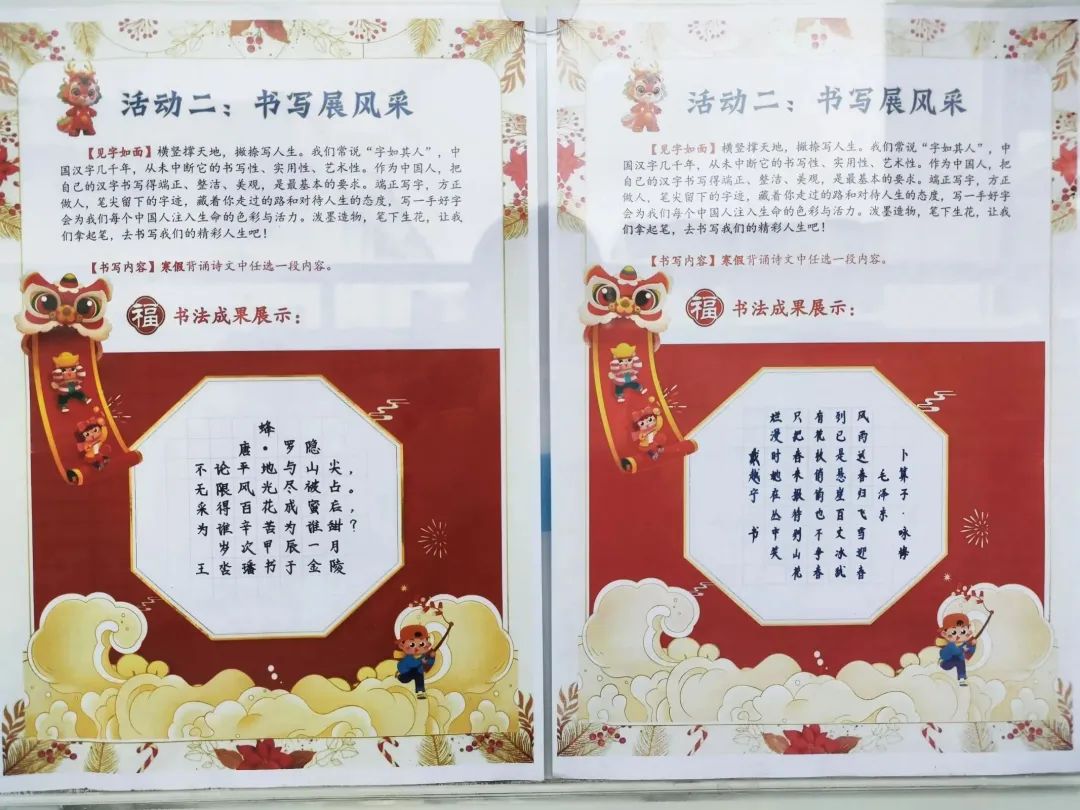 活动二：书写展风采
【见字如面】横竖撑天地，撇捺写人生。我们常说“字如其人”，中
国汉字几千年，从未中断它的书写性、实用性、艺术性。作为中国人，把
自己的汉字书写得端正、整洁、美观，是最基本的要求。端正写字，方正
做人，笔尖留下的字迹，藏着你走过的路和对待人生的态度，写一手好字
会为我们每个中国人注入生命的色彩与活力。泼墨造物，笔下生花，让我
们拿起笔，去书写我们的精彩人生吧！
【书写内容】寒假背诵诗文中任选一段内容。
福 书法成果展示：
蜂
唐·罗隐
不论平地与山尖，
无限风光尽被占。
采得百花成蜜后，
为谁辛苦为谁甜？
岁次甲辰一月
王 璠书于金陵
活动二：书写展风采
【见字如面】横竖撑天地，撇捺写人生。我们常说“字如其人”，中
国汉字几千年，从未中断它的书写性、实用性、艺术性。作为中国人，把
自己的汉字书写得端正、整洁、美观，是最基本的要求。端正写字，方正
做人，笔尖留下的字迹，藏着你走过的路和对待人生的态度，写一手好字
会为我们每个中国人注入生命的色彩与活力。泼墨造物，笔下生花，让我
们拿起笔，去书写我们的精彩人生吧！
【书写内容】寒假背诵诗文中任选一段内容。
福 书法成果展示：
卜算子·咏梅
毛泽东
风雨送春归飞雪迎春
到已是悬崖百丈冰犹
有花枝俏俏也不争春
只把春来报待到山花
烂漫时她在丛中笑
戴越宁 书